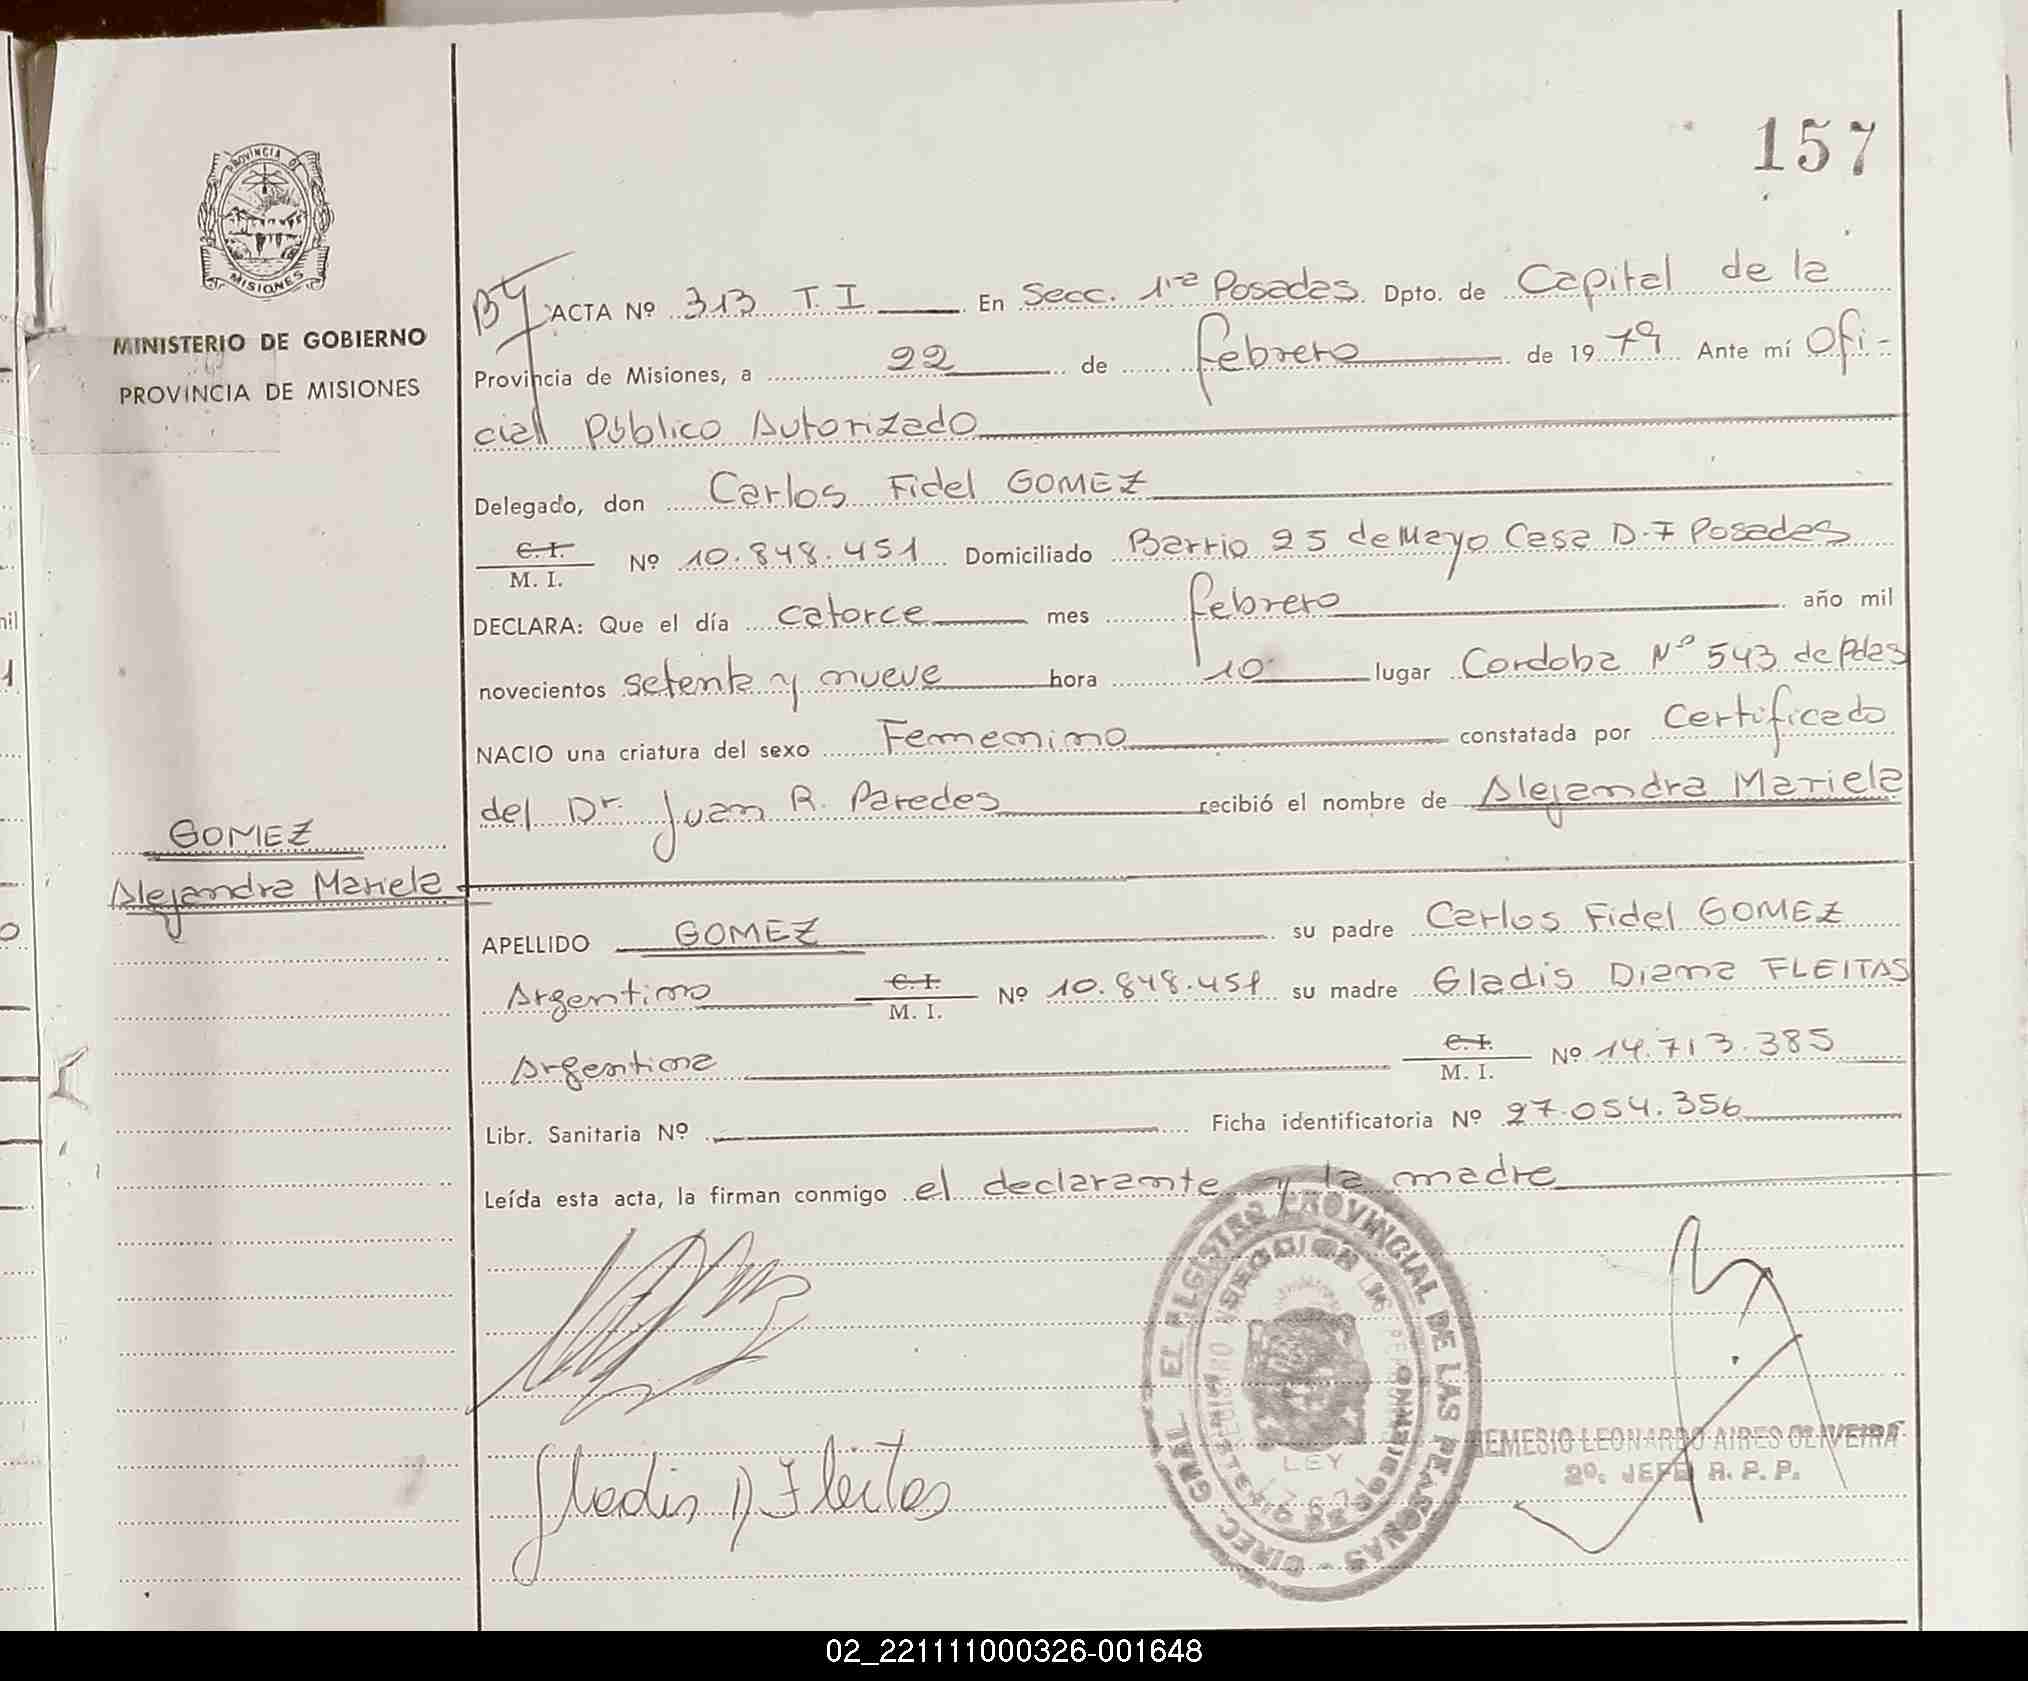 157
PROVINCIA DE
MISIONES
MINISTERIO DE GOBIERNO
PROVINCIA DE MISIONES
ACTA Nº 313 T. I En Secc. 1ra Posadas Dpto. de Capital de la
Provincia de Misiones, a 22 de febrero de 1979 Ante mí Ofi-
cial Público Autorizado
Delegado, don Carlos Fidel GOMEZ
C. I.
M. I. Nº 10.848.451 Domiciliado Barrio 25 de Mayo Casa D-7 Posadas
DECLARA: Que el día catorce mes febrero año mil
novecientos setenta y nueve hora 10 lugar Cordoba Nº 543 de Pdas
NACIO una criatura del sexo Femenino constatada por Certificado
del Dr. Juan R. Paredes recibió el nombre de Alejandra Mariela
GOMEZ
Alejandra Mariela
APELLIDO GOMEZ su padre Carlos Fidel GOMEZ
Argentino C. I. M. I. Nº 10.848.451 su madre Gladis Diana FLEITAS
Argentina C. I. M. I. Nº 14.713.385
Libr. Sanitaria Nº Ficha identificatoria Nº 27.054.356
Leída esta acta, la firman conmigo el declarante y la madre
Gladis D Fleitas
DIREC. GRAL. EL REGISTRO PROVINCIAL DE LAS PERSONAS
LEY
NEMESIO LEONARDO AIRES OLIVEIRA
2º. JEFE R. P. P.
02_221111000326-001648